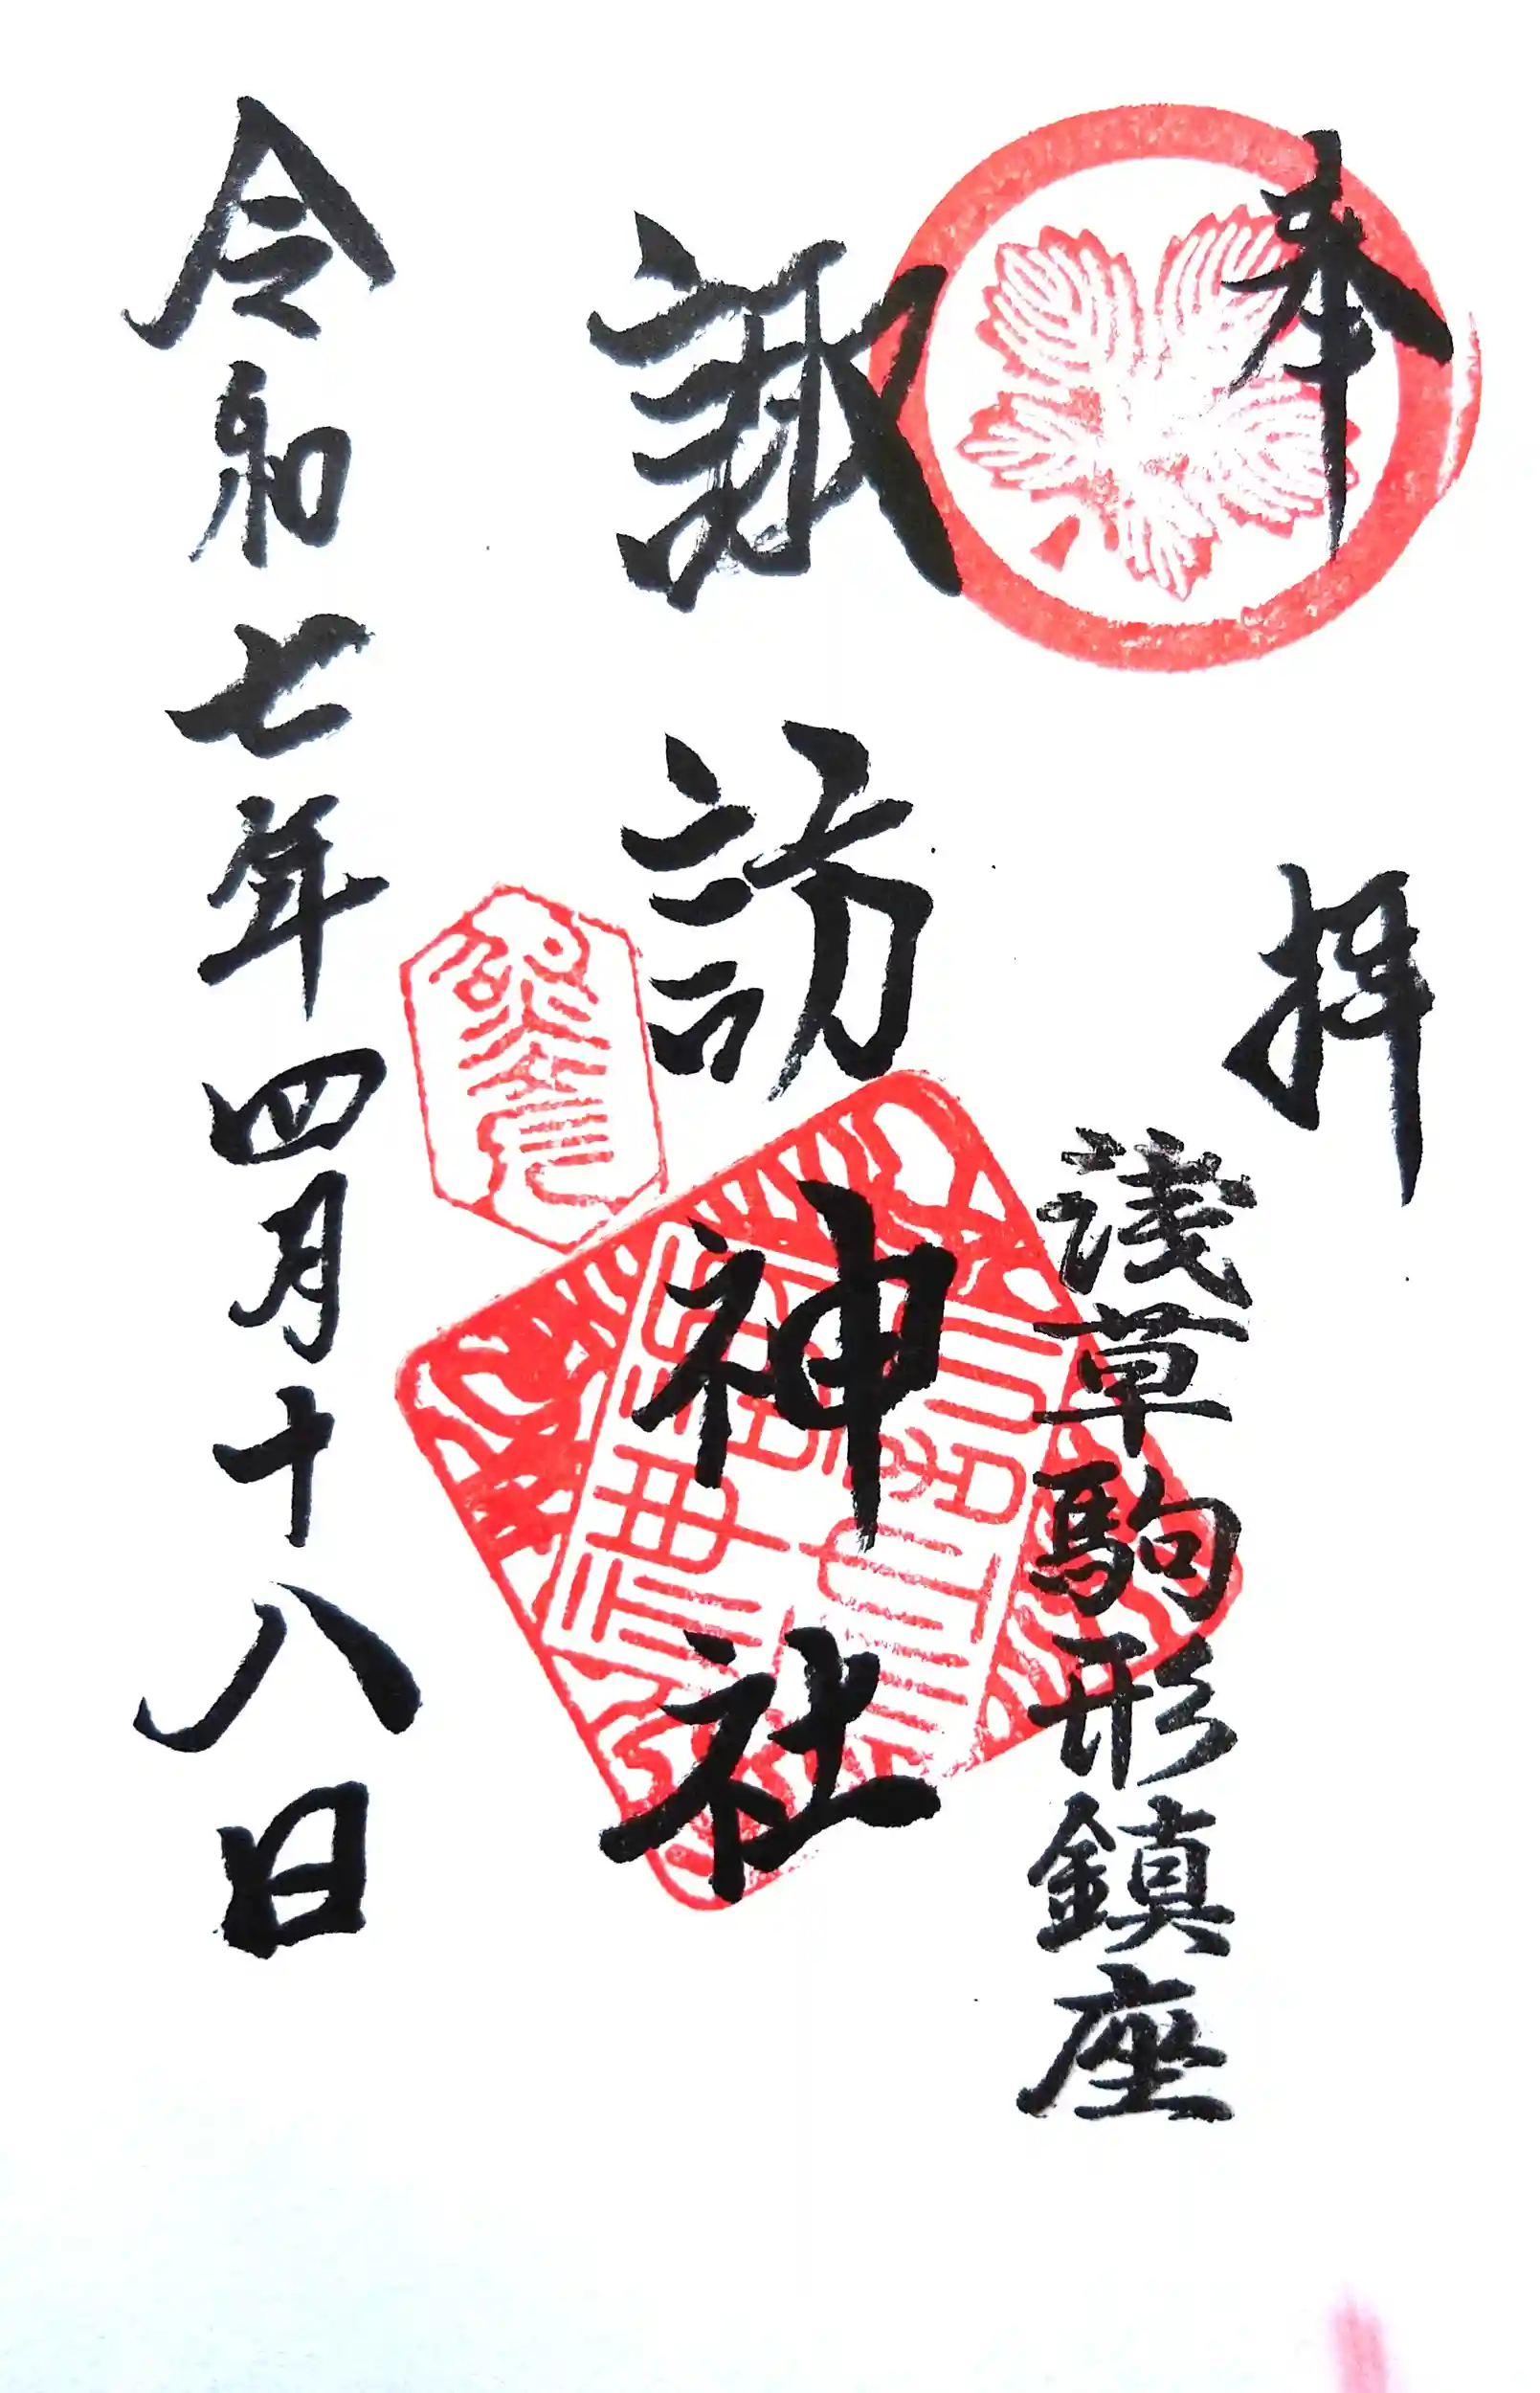 奉拝
淺草駒形鎮座
諏訪神社
令和七年四月十八日